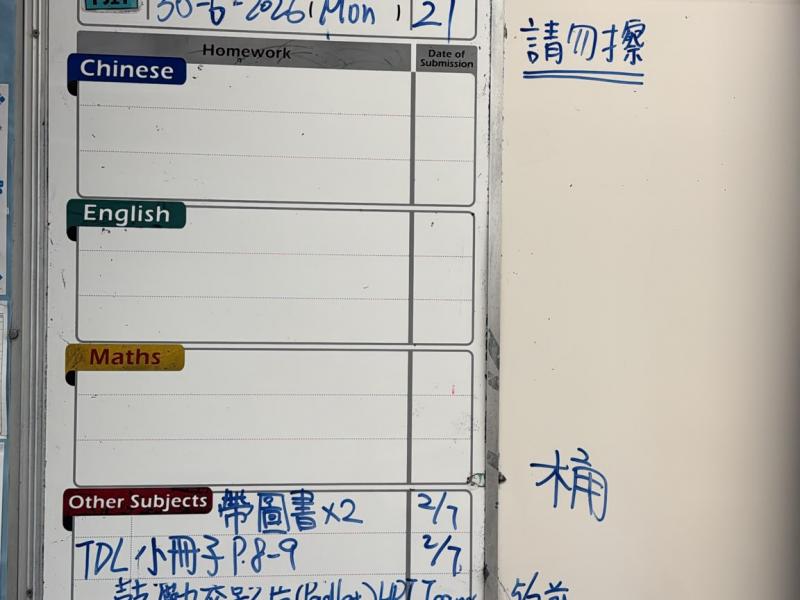 30-6-2026, Mon, 21
Homework
Date of Submission
請勿擦
Chinese
English
Maths
桶
Other Subjects 帶圖書x2 2/7
TDL 小冊子 P.8-9 2/7